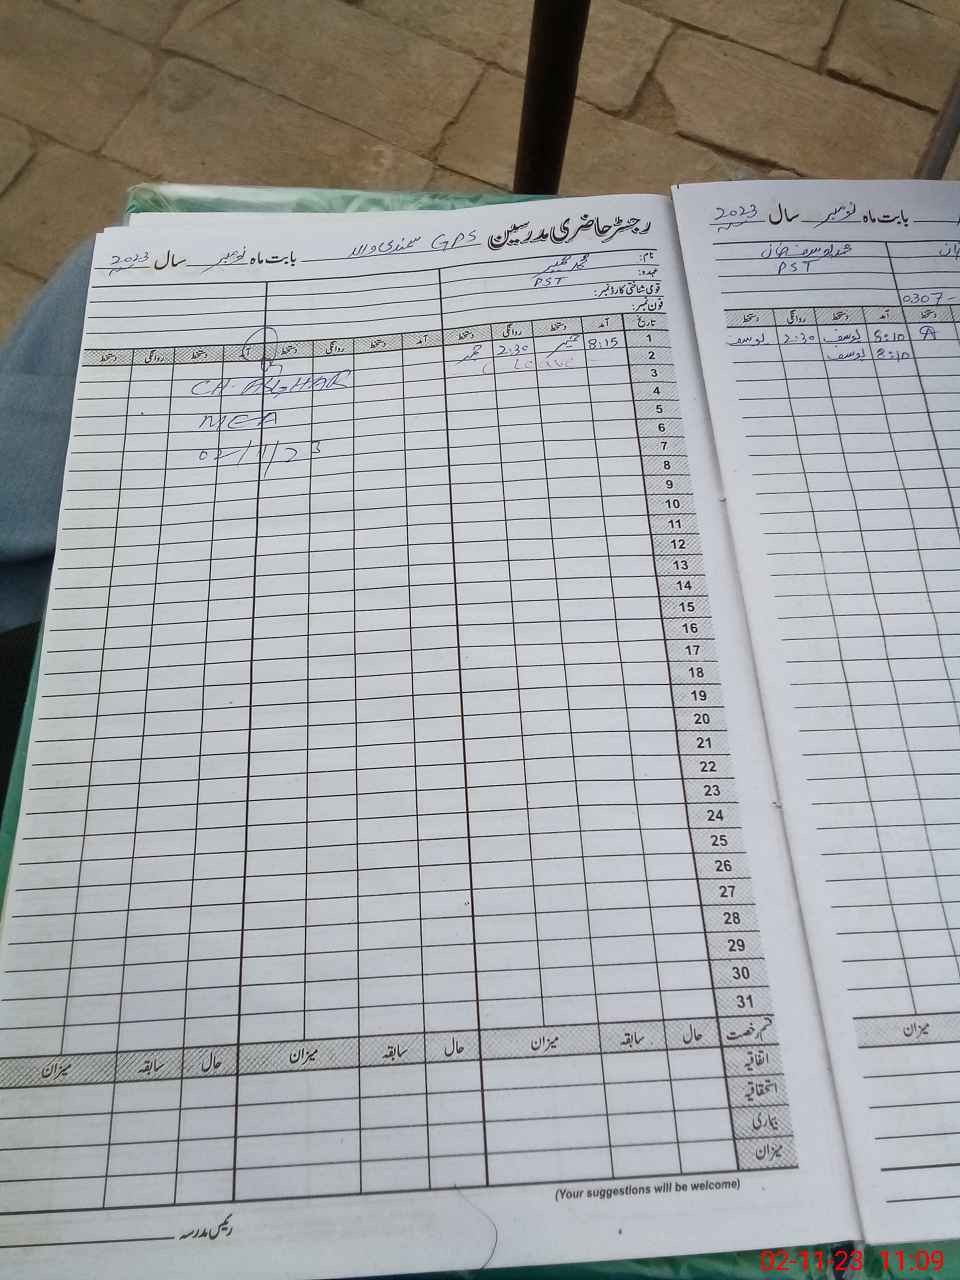 رجسٹر حاضری مدرسین GPS سمندی والہ بابت ماہ نومبر سال 2023
نام:
عہدہ: PST
قومی شناختی کارڈ نمبر:
فون نمبر:
تاریخ آمد دستخط روانگی دستخط آمد دستخط روانگی دستخط آمد دستخط روانگی دستخط
1 8:15 2:30
2 C Leave
3
4
5
6
7
8
9
10
11
12
13
14
15
16
17
18
19
20
21
22
23
24
25
26
27
28
29
30
31
CH. ASGHAR
MEA
02/11/23
قسم رخصت حال سابقہ میزان حال سابقہ میزان حال سابقہ میزان
اتفاقیہ
استحقاقیہ
بیماری
میزان
(Your suggestions will be welcome)
رئیس مدرسہ
بابت ماہ نومبر سال 2023
محمد یوسف خان
PST
0307-
دستخط آمد دستخط روانگی دستخط
A 8:10 یوسف 2:30 یوسف
8:10 یوسف
میزان
02-11-23 11:09